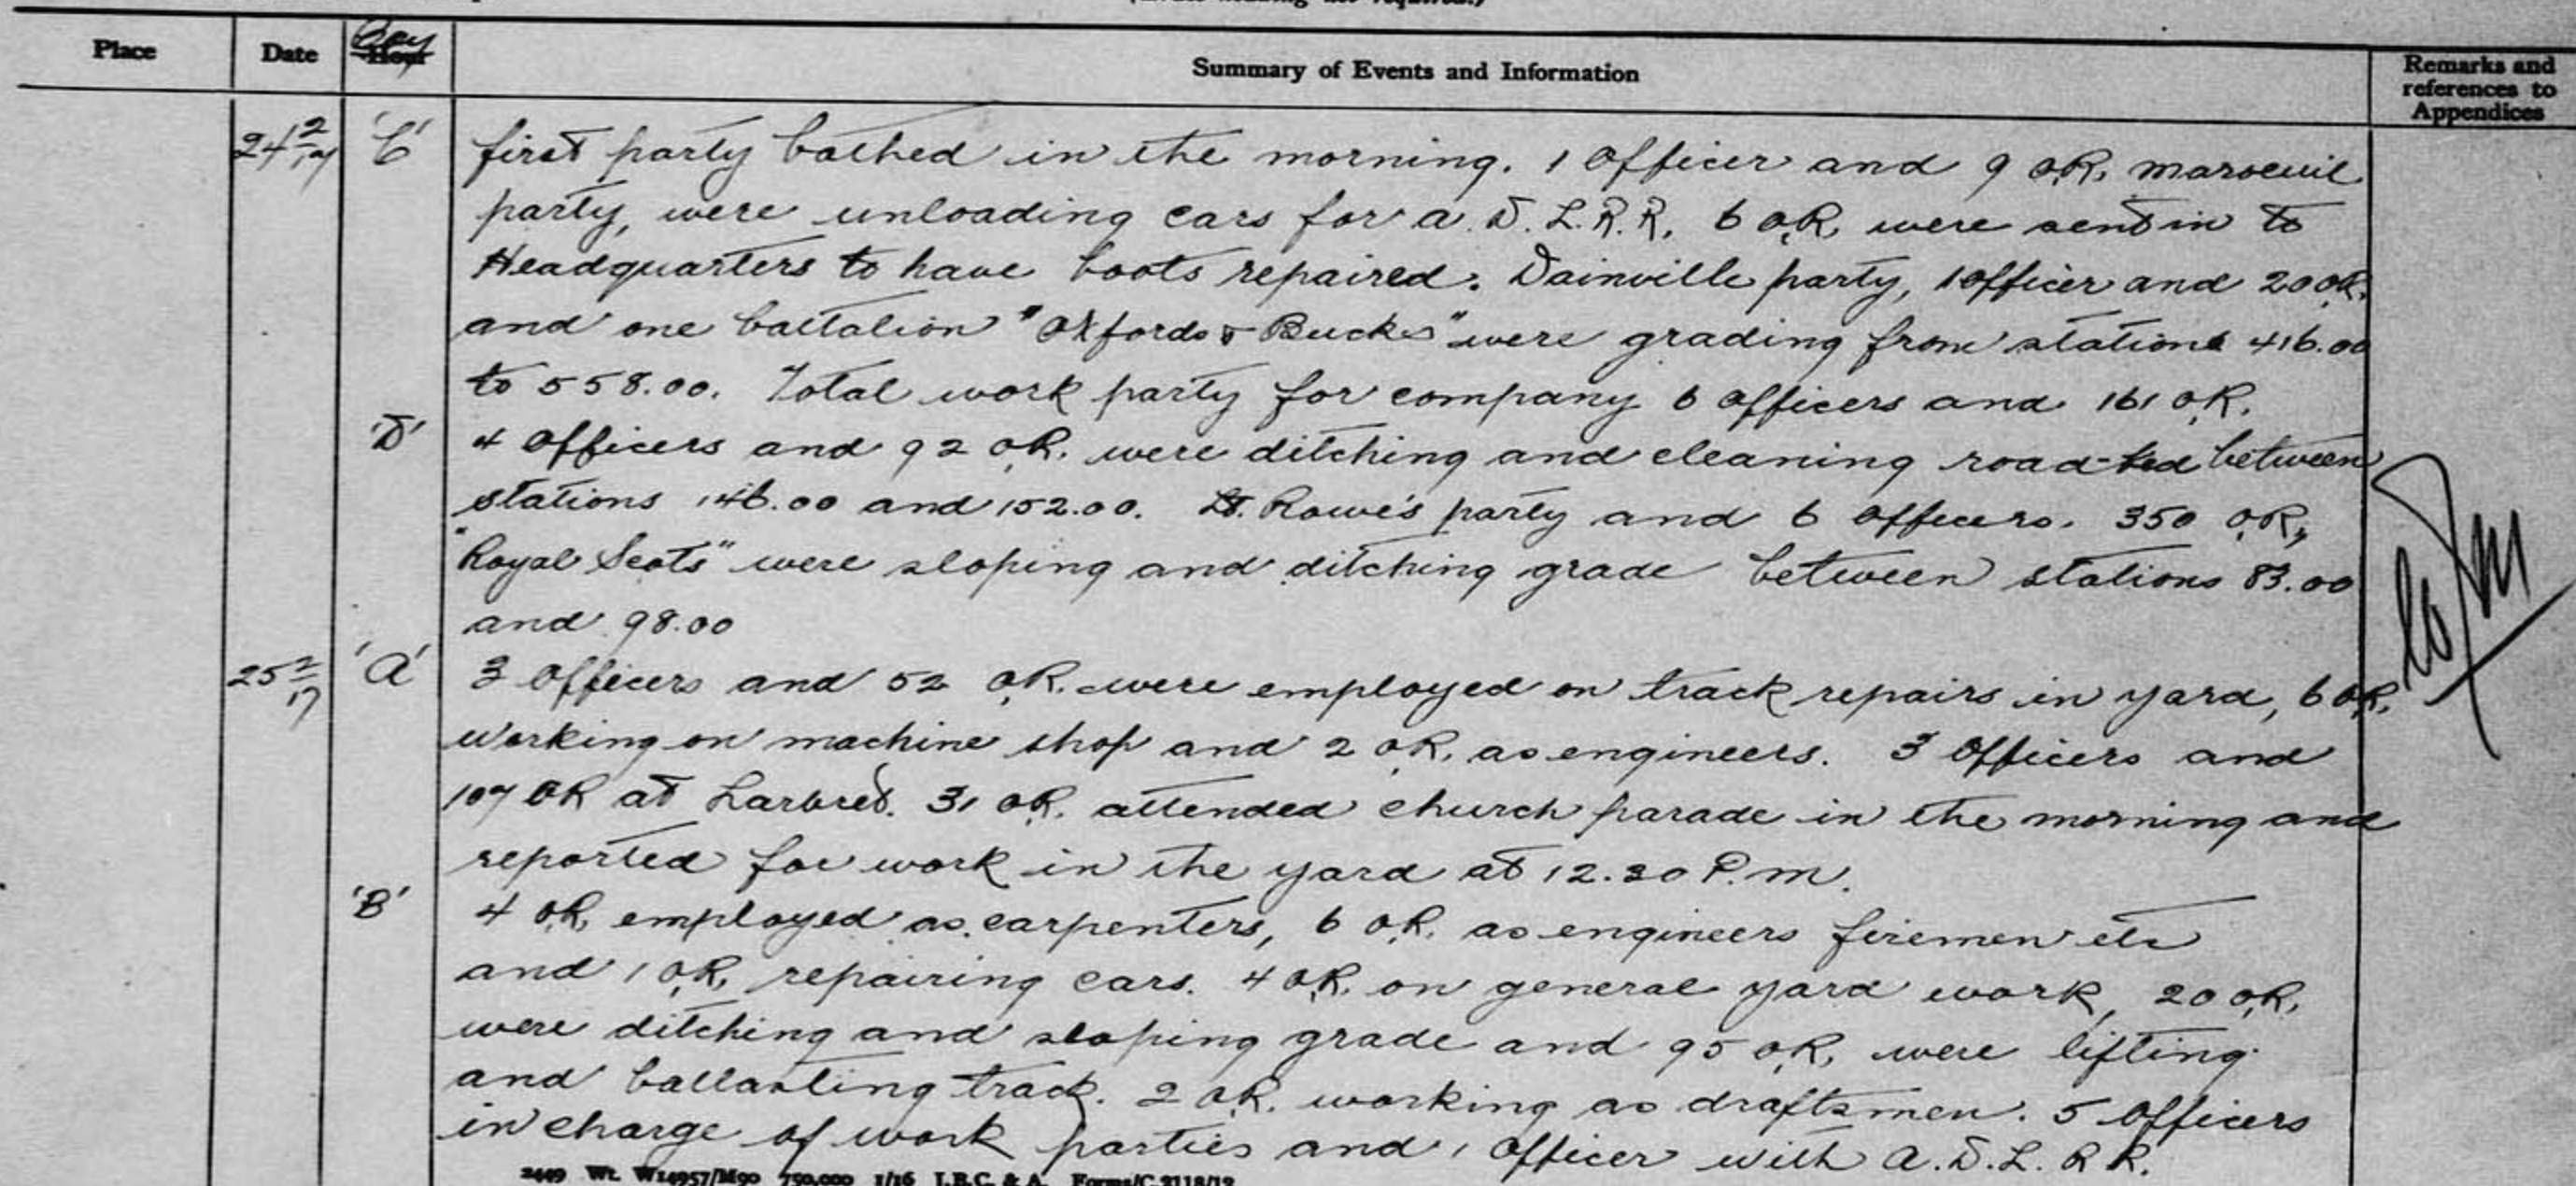 Place Date Coy Hour Summary of Events and Information Remarks and references to Appendices
24/2/17 'C' first party bathed in the morning. 1 Officer and 9 O.R. Maroeuil
party, were unloading cars for A.D.L.R.R. 6 O.R. were sent in to
Headquarters to have boots repaired. Dainville party, 1 Officer and 20 O.R.
and one battalion "Oxfords & Bucks" were grading from stations 416.00
to 558.00. Total work party for company 6 Officers and 161 O.R.
'D' 4 Officers and 92 O.R. were ditching and cleaning road-bed between
stations 146.00 and 152.00. Lt. Rowe's party and 6 Officers. 350 O.R.,
"Royal Scots" were sloping and ditching grade between stations 83.00
and 98.00
25/2/17 'A' 3 Officers and 52 O.R. were employed on track repairs in yard, 6 O.R.
working on machine shop and 2 O.R. as engineers. 3 Officers and
107 OR at Larbret. 31 O.R. attended church parade in the morning and
reported for work in the yard at 12.30 P.M.
'B' 4 O.R. employed as carpenters, 6 O.R. as engineers firemen etc
and 1 O.R. repairing cars. 4 O.R. on general yard work, 20 O.R.
were ditching and sloping grade and 95 O.R. were lifting
and ballasting track. 2 O.R. working as draftsmen. 5 Officers
in charge of work parties and 1 Officer with A.D.L.R.R.
2449 Wt. W14957/M90 750,000 1/16 J.B.C. & A. Forms/C.2118/12